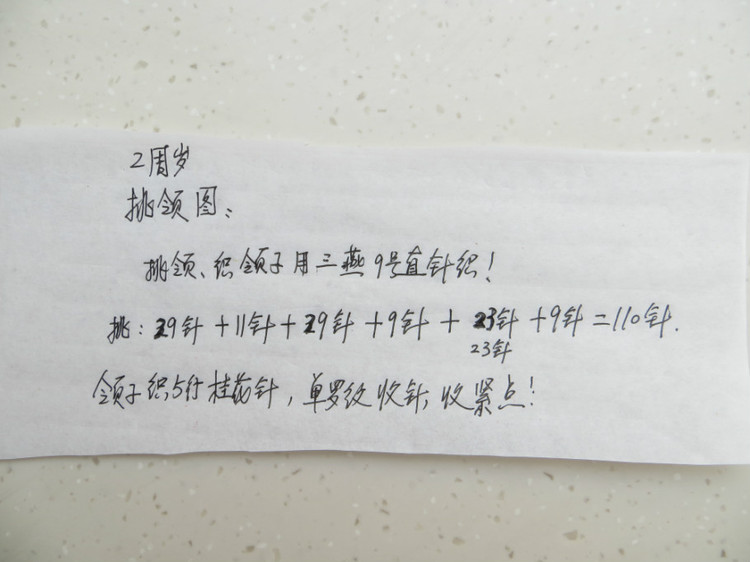 2周岁
挑领图：
挑领、织领子用三燕9号直针织！
挑：29针+11针+29针+9针+23针+9针=110针.
23针
领子织5行桂花针，单罗纹收针，收紧点！